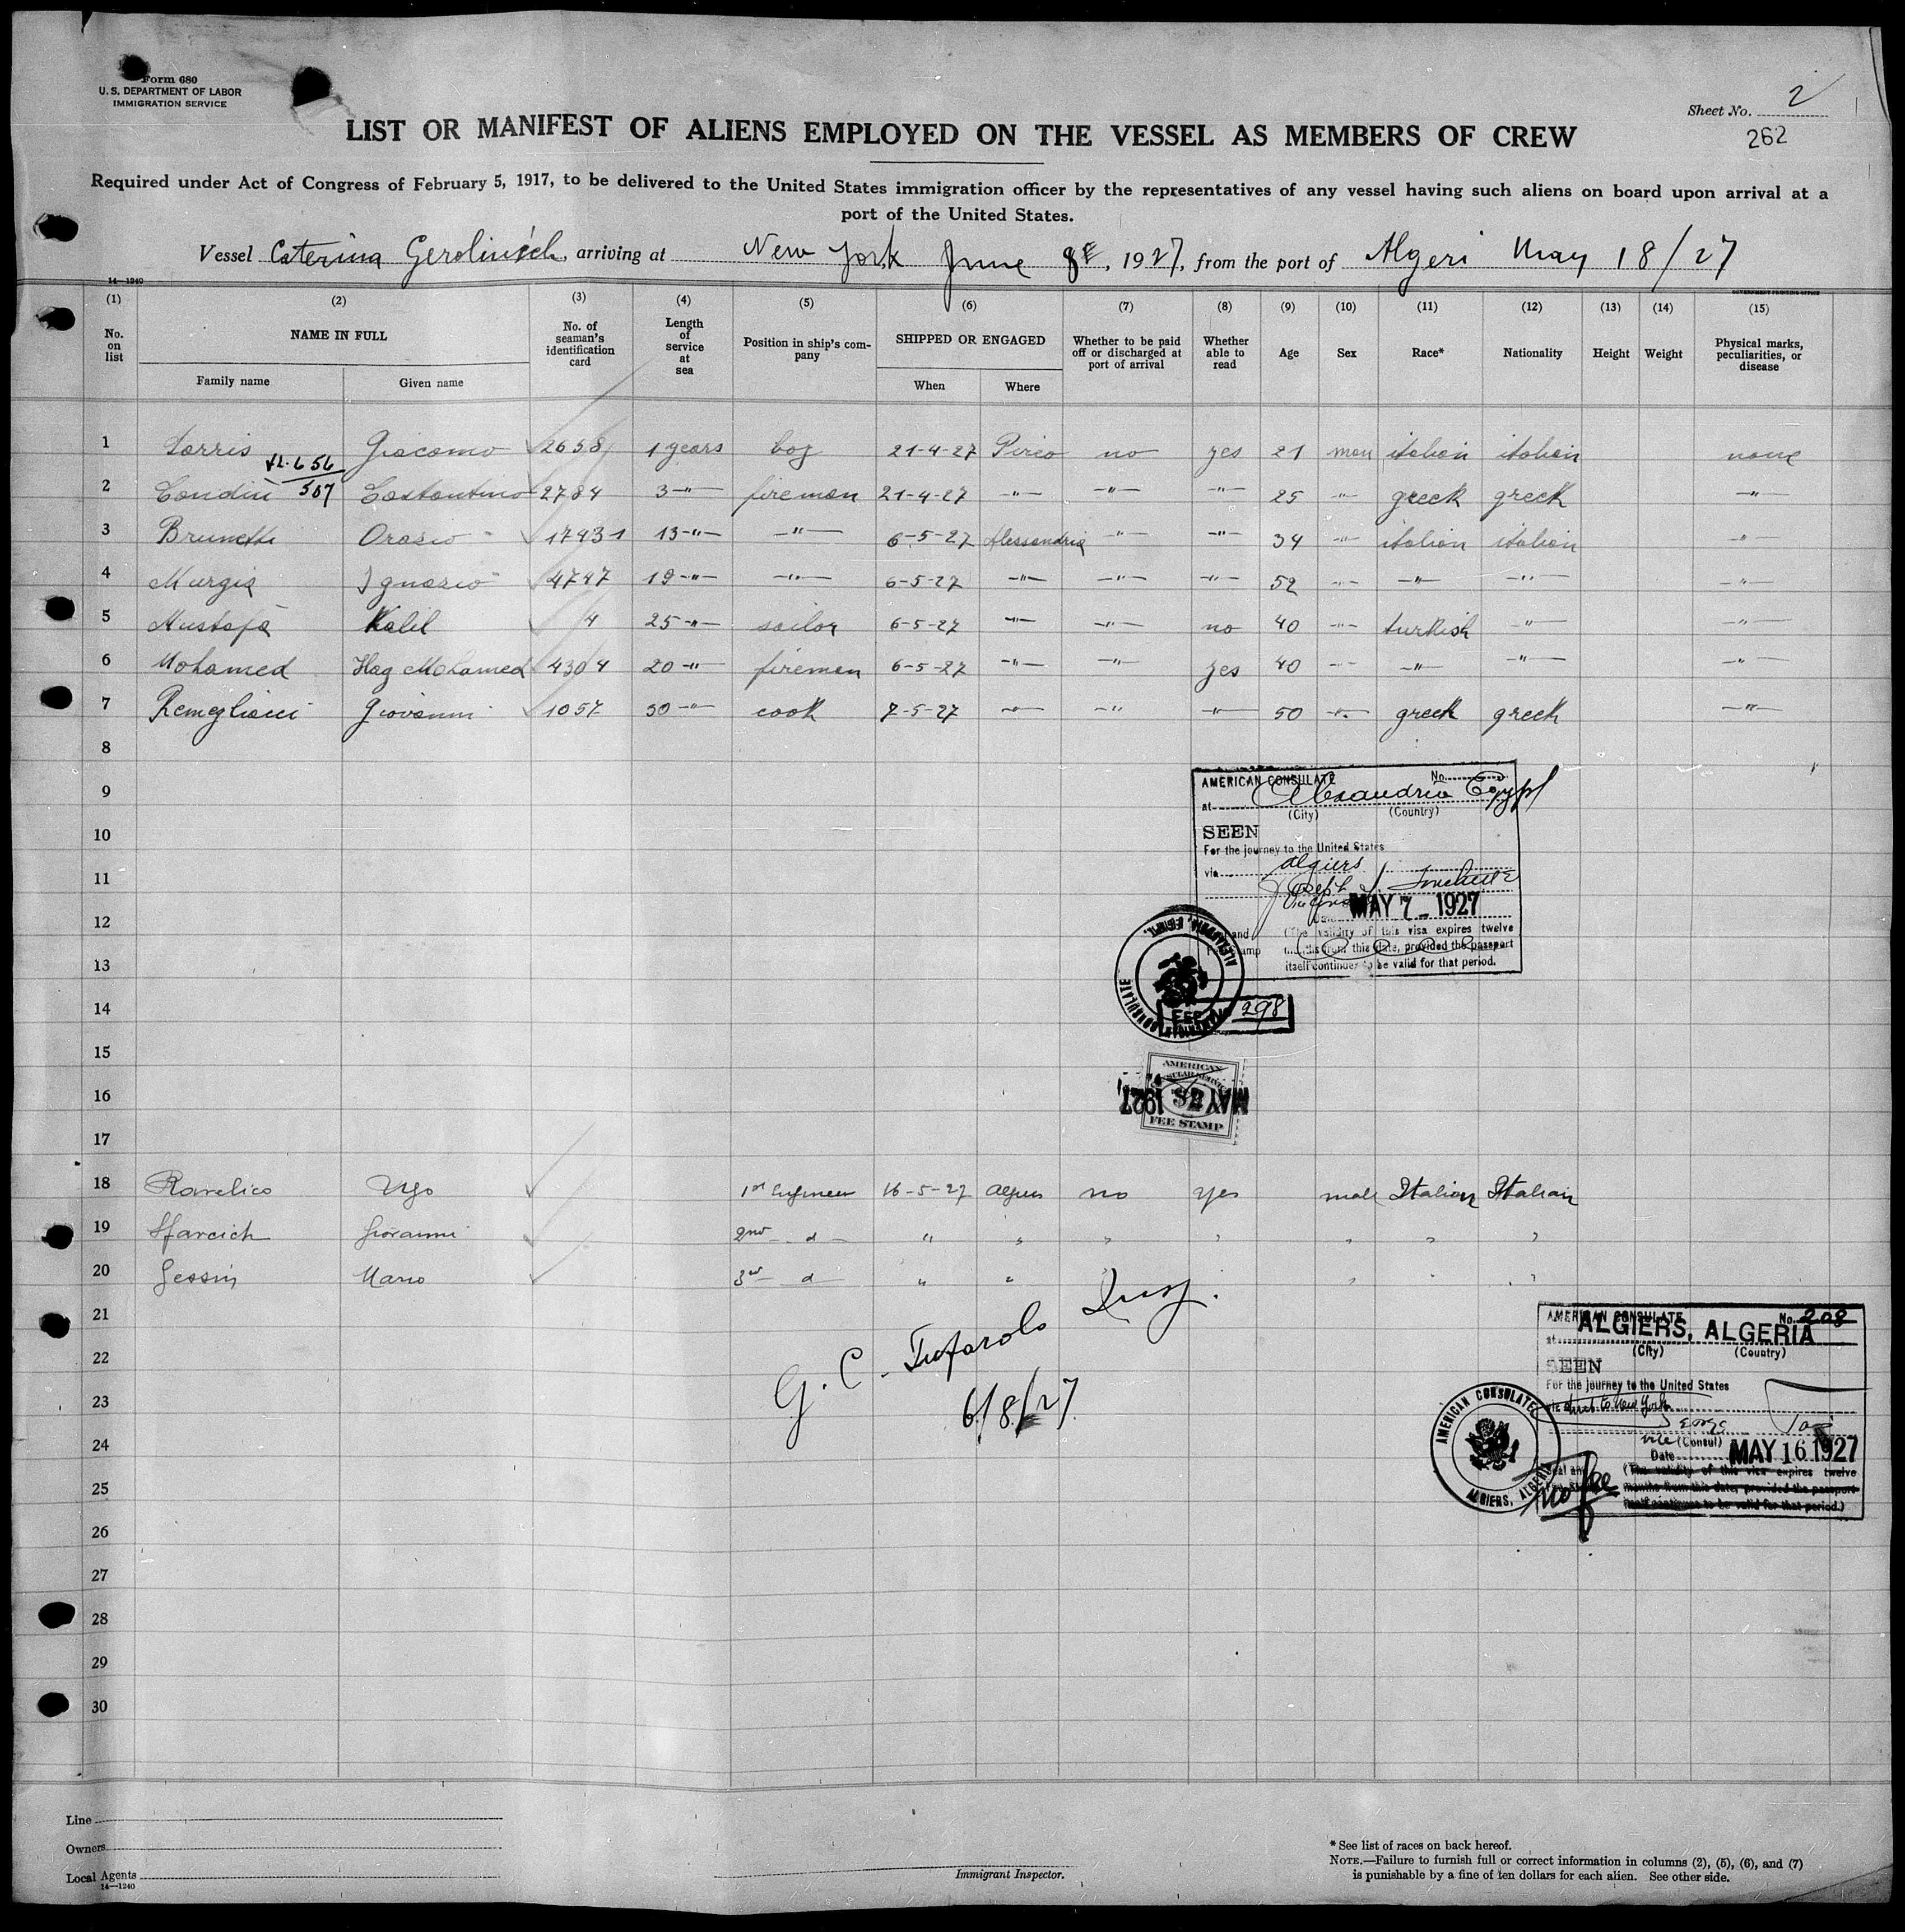 Form 680
U. S. DEPARTMENT OF LABOR
IMMIGRATION SERVICE
Sheet No. 2
262
LIST OR MANIFEST OF ALIENS EMPLOYED ON THE VESSEL AS MEMBERS OF CREW
Required under Act of Congress of February 5, 1917, to be delivered to the United States immigration officer by the representatives of any vessel having such aliens on board upon arrival at a
port of the United States.
Vessel Caterina Gerolimich, arriving at New York June 8, 1927, from the port of Algeri May 18/27
14—1240 GOVERNMENT PRINTING OFFICE
(1) (2) (3) (4) (5) (6) (7) (8) (9) (10) (11) (12) (13) (14) (15)
No. on list NAME IN FULL No. of seaman's identification card Length of service at sea Position in ship's company SHIPPED OR ENGAGED Whether to be paid off or discharged at port of arrival Whether able to read Age Sex Race* Nationality Height Weight Physical marks, peculiarities, or disease
Family name Given name When Where
1 Giacomo 2658 1 years boy 21-4-27 Pireo no yes 21 man italian italian none
656
507
2 Costantino 2784 3 -"- fireman 21-4-27 -"- -"- -"- 25 -"- greek greek -"-
3 Brunetti Orazio 17931 13 -"- -"- 6-5-27 Alessandria -"- -"- 34 -"- italian italian -"-
4 Murgia Ignazio 4747 19 -"- -"- 6-5-27 -"- -"- -"- 52 -"- -"- -"- -"-
5 Mustafa Kalil 4 25 -"- sailor 6-5-27 -"- -"- no 40 -"- turkish -"- -"-
6 Mohamed Hag Mohamed 4304 20 -"- fireman 6-5-27 -"- -"- yes 40 -"- -"- -"- -"-
7 Giovanni 1057 30 -"- cook 7-5-27 -"- -"- -"- 50 -"- greek greek -"-
8
9
10
11
12
13
14
15
16
17
AMERICAN CONSULATE No.
at Alexandria Egypt
(City) (Country)
SEEN
For the journey to the United States
via Algiers
Joseph
MAY 7 - 1927
(The validity of this visa expires twelve
months from this date, provided the passport
itself continues to be valid for that period.)
ALEXANDRIA, EGYPT.
CONSULATE
298
AMERICAN
MAY 7 1927
FEE STAMP
18 Ravelico Ugo 1st Engineer 16-5-27 Algiers no yes male Italian Italian
19 Giovanni 2nd d " " " " " " "
20 Mario 3rd d " " " "
21
22
23
24
25
26
27
28
29
30
G. C. Tufarolo Insp.
6/8/27
AMERICAN CONSULATE No. 208
at ALGIERS, ALGERIA
(City) (Country)
SEEN
For the journey to the United States
via direct to New York
George
Vice (Consul)
Date MAY 16 1927
(The validity of this visa expires twelve
months from this date, provided the passport
itself continues to be valid for that period.)
no fee
AMERICAN CONSULATE
ALGIERS, ALGERIA
Line
Owners
Local Agents
14—1240
Immigrant Inspector.
* See list of races on back hereof.
NOTE.—Failure to furnish full or correct information in columns (2), (5), (6), and (7)
is punishable by a fine of ten dollars for each alien. See other side.